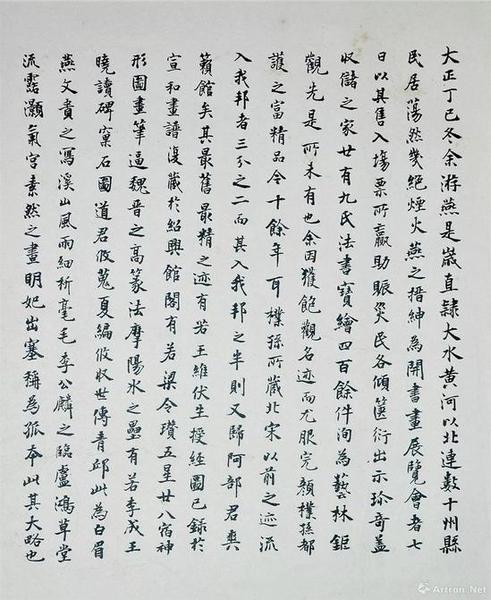 大正丁巳冬余游燕是歲直隸大水黃河以北連數十州縣
民居蕩然幾絕煙火燕之搢紳為開書畫展覽會者七
日以其售入場票所贏助賑災民各傾篋衍出示珍奇蓋
收儲之家廿有九氏法書寶繪四百餘件洵為藝林鉅
觀先是所未有也余因獲飽觀名迹而尤服完顏樸孫都
護之富精品今十餘年耳樸孫所藏北宋以前之迹流
入我邦者三分之二而其入我邦之半則又歸阿部君爽
籟館矣其最舊最精之迹有若王維伏生授經圖已錄於
宣和畫譜復藏於紹興館閣有若梁令瓚五星廿八宿神
形圖畫筆逼魏晉之高篆法摩陽冰之壘有若李成王
曉讀碑窠石圖道君攸蒐夏編攸收世傳青邱此為白眉
燕文貴之寫溪山風雨細析毫毛李公麟之臨盧鴻草堂
流露灝氣宮素然之畫明妃出塞稱為孤本此其大略也
Artron.Net